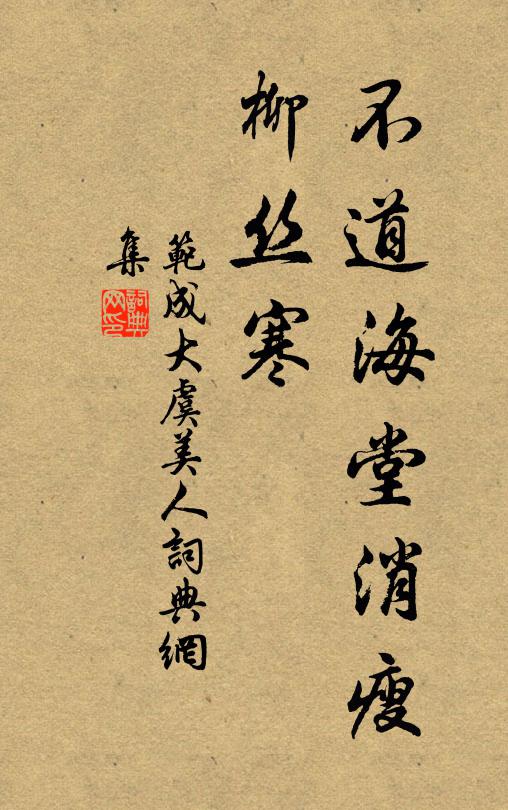 不道海堂消瘦
柳丝寒
範成大虞美人詞典網
集
詞典
网印